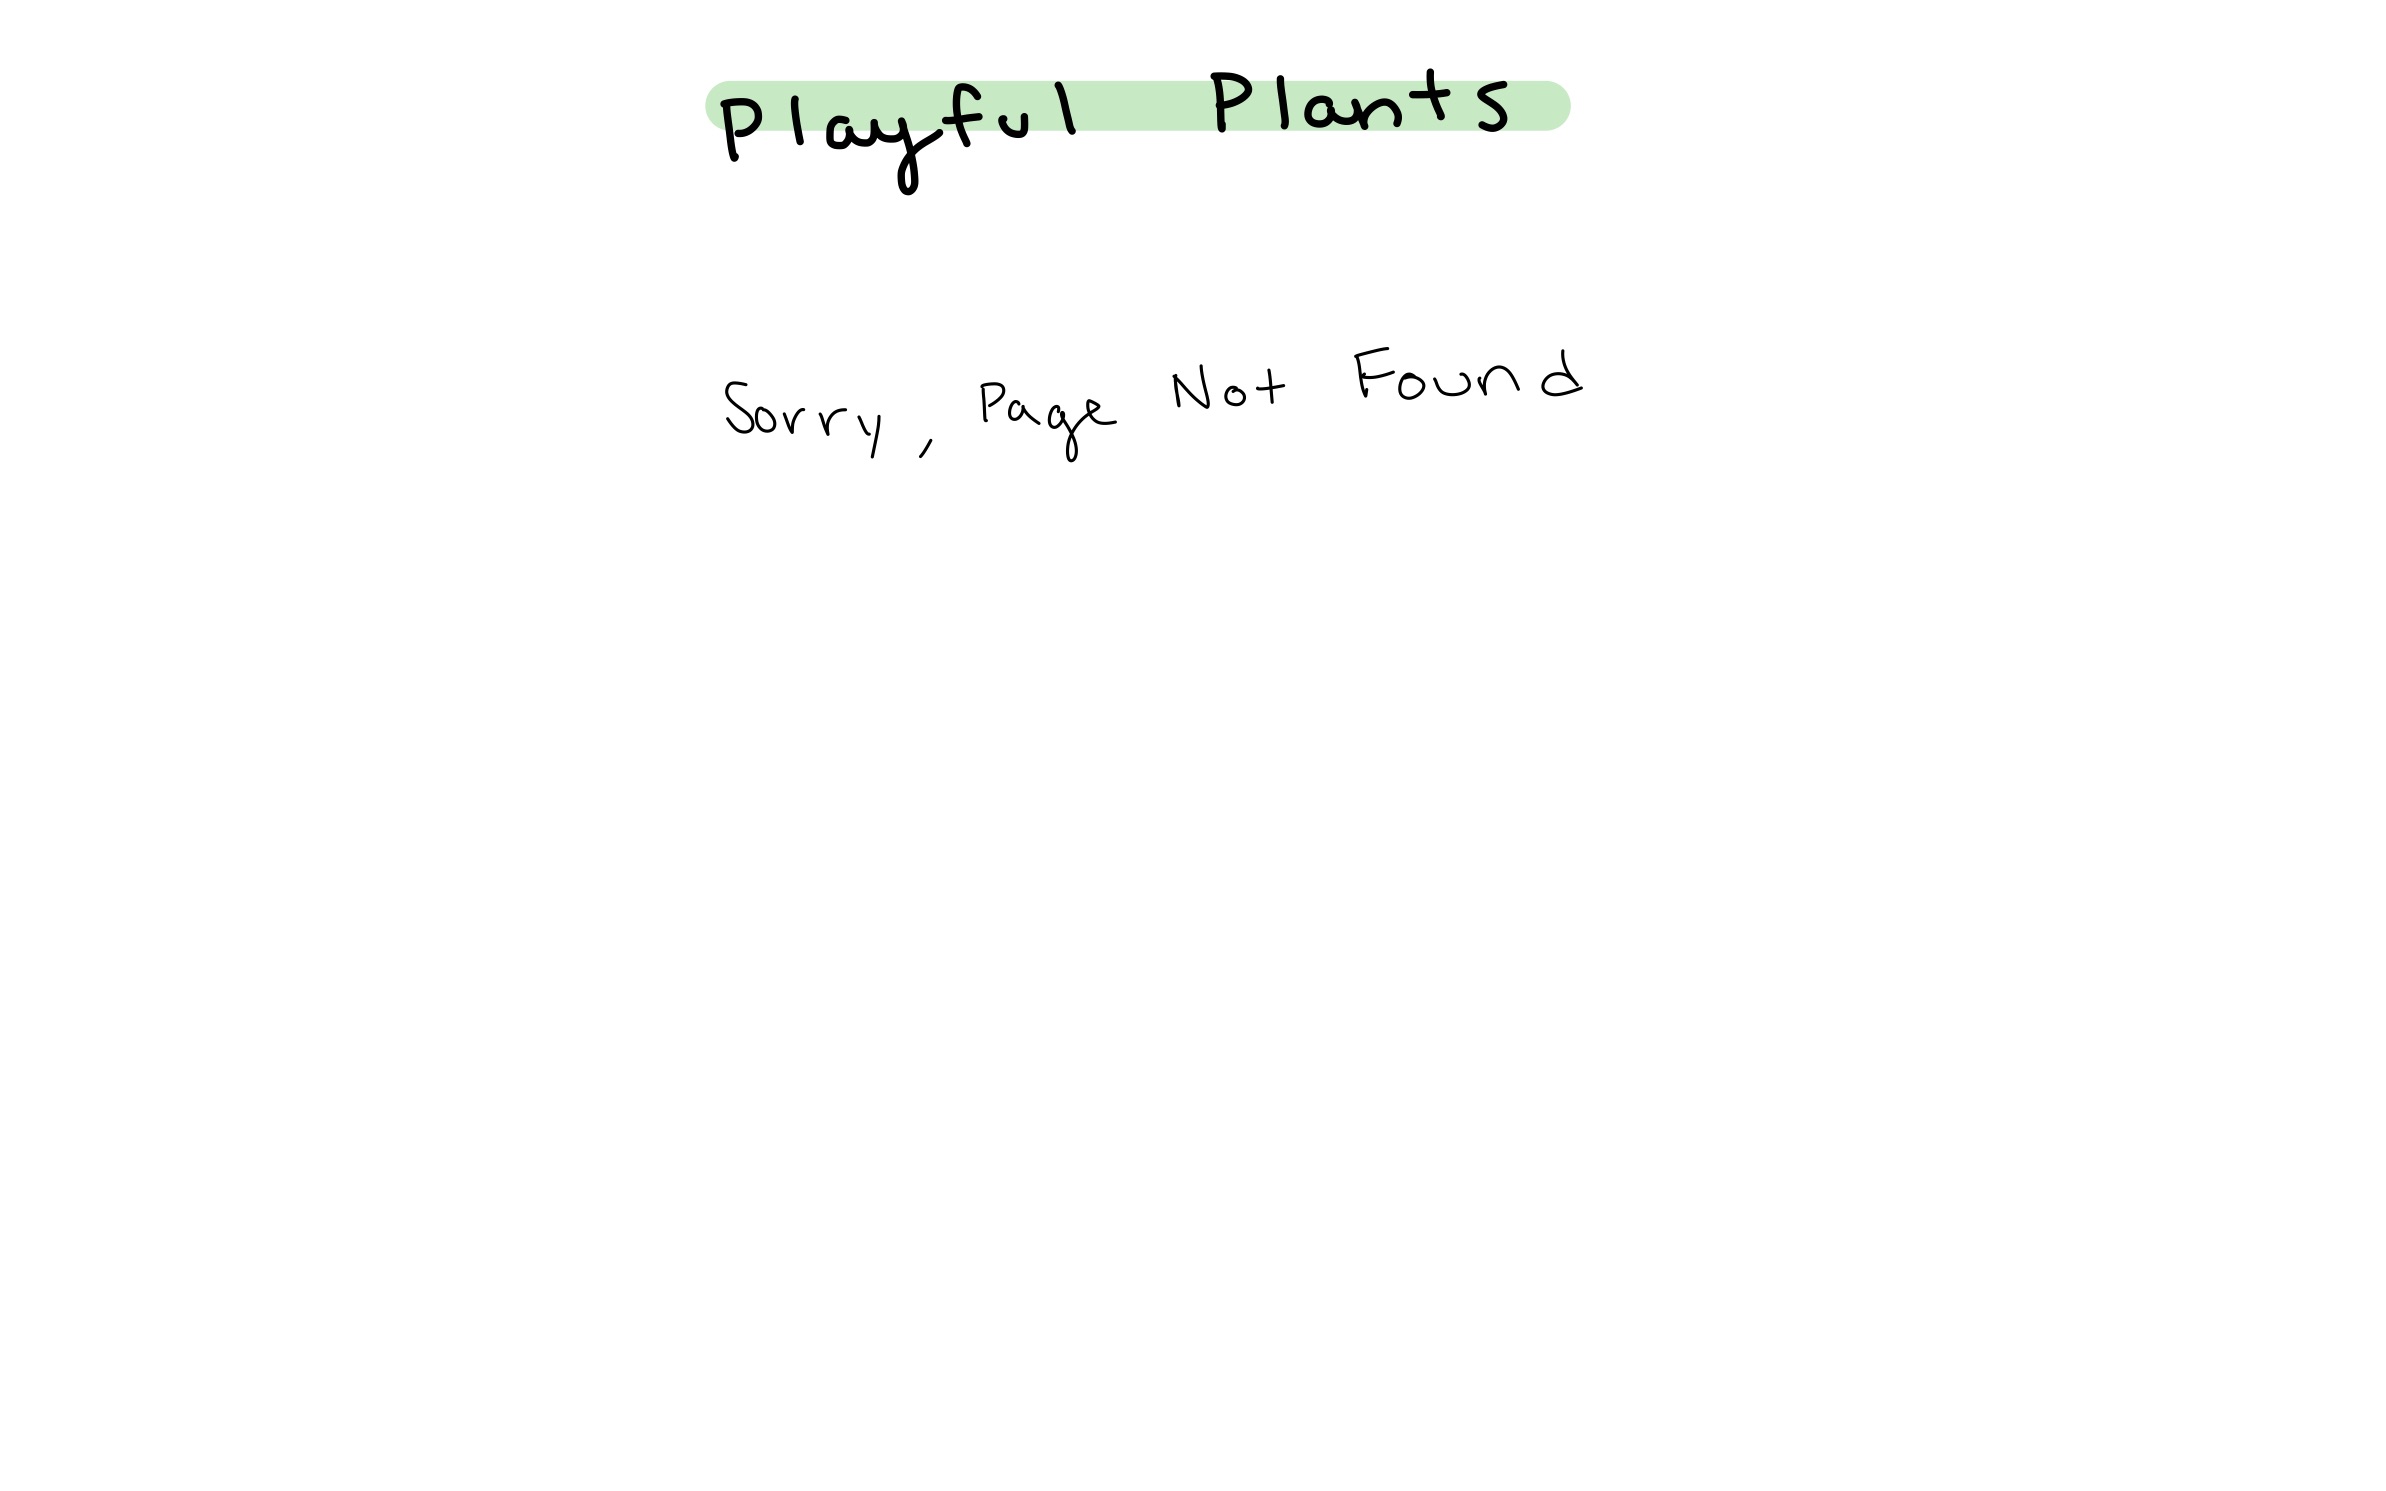 Playful Plants
Sorry, Page Not Found